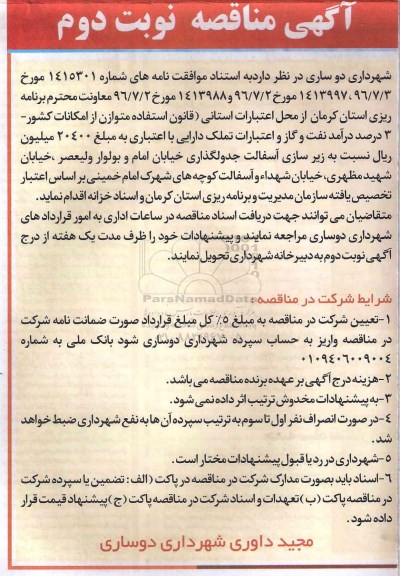 آگهی مناقصه نوبت دوم
شهرداری دو ساری در نظر داردبه استناد موافقت نامه های شماره ۱۴۱۵۳۰۱ مورخ
۹۶/۷/۳، ۱۴۱۳۹۹۷ مورخ ۹۶/۷/۲ و ۱۴۱۳۹۸۸ مورخ ۹۶/۷/۲ معاونت محترم برنامه
ریزی استان کرمان از محل اعتبارات استانی ( قانون استفاده متوازن از امکانات کشور-
۳ درصد درآمد نفت و گاز و اعتبارات تملک دارایی با اعتباری به مبلغ ۲۰۴۰۰ میلیون
ریال نسبت به زیر سازی آسفالت جدولگذاری خیابان امام و بولوار ولیعصر ،خیابان
شهید مطهری، خیابان شهداء و آسفالت کوچه های شهرک امام خمینی بر اساس اعتبار
تخصیص یافته سازمان مدیریت و برنامه ریزی استان کرمان و اسناد خزانه اقدام نماید.
متقاضیان می توانند جهت دریافت اسناد مناقصه در ساعات اداری به امور قرارداد های
شهرداری دوساری مراجعه نمایند و پیشنهادات خود را ظرف مدت یک هفته از درج
آگهی نوبت دوم به دبیرخانه شهرداری تحویل نمایند.
ParsNamadData
شرایط شرکت در مناقصه :
۱-تعیین شرکت در مناقصه به مبلغ ۵٪ کل مبلغ قرارداد صورت ضمانت نامه شرکت
در مناقصه واریز به حساب سپرده شهرداری دوساری شود بانک ملی به شماره
۰۱۰۹۴۰۶۰۰۹۰۰۴
۲-هزینه درج آگهی بر عهده برنده مناقصه می باشد.
۳-به پیشنهادات مخدوش ترتیب اثر داده نمی شود.
۴-در صورت انصراف نفر اول تا سوم به ترتیب سپرده آن ها به نفع شهرداری ضبط خواهد
شد.
۵-شهرداری در رد یا قبول پیشنهادات مختار است.
۶-اسناد باید بصورت مدارک شرکت در مناقصه در پاکت (الف : تضمین یا سپرده شرکت
در مناقصه پاکت ( ب ) تعهدات و اسناد شرکت در مناقصه پاکت ( ج ) پیشنهاد قیمت قرار
داده شود .
مجید داوری شهرداری دوساری